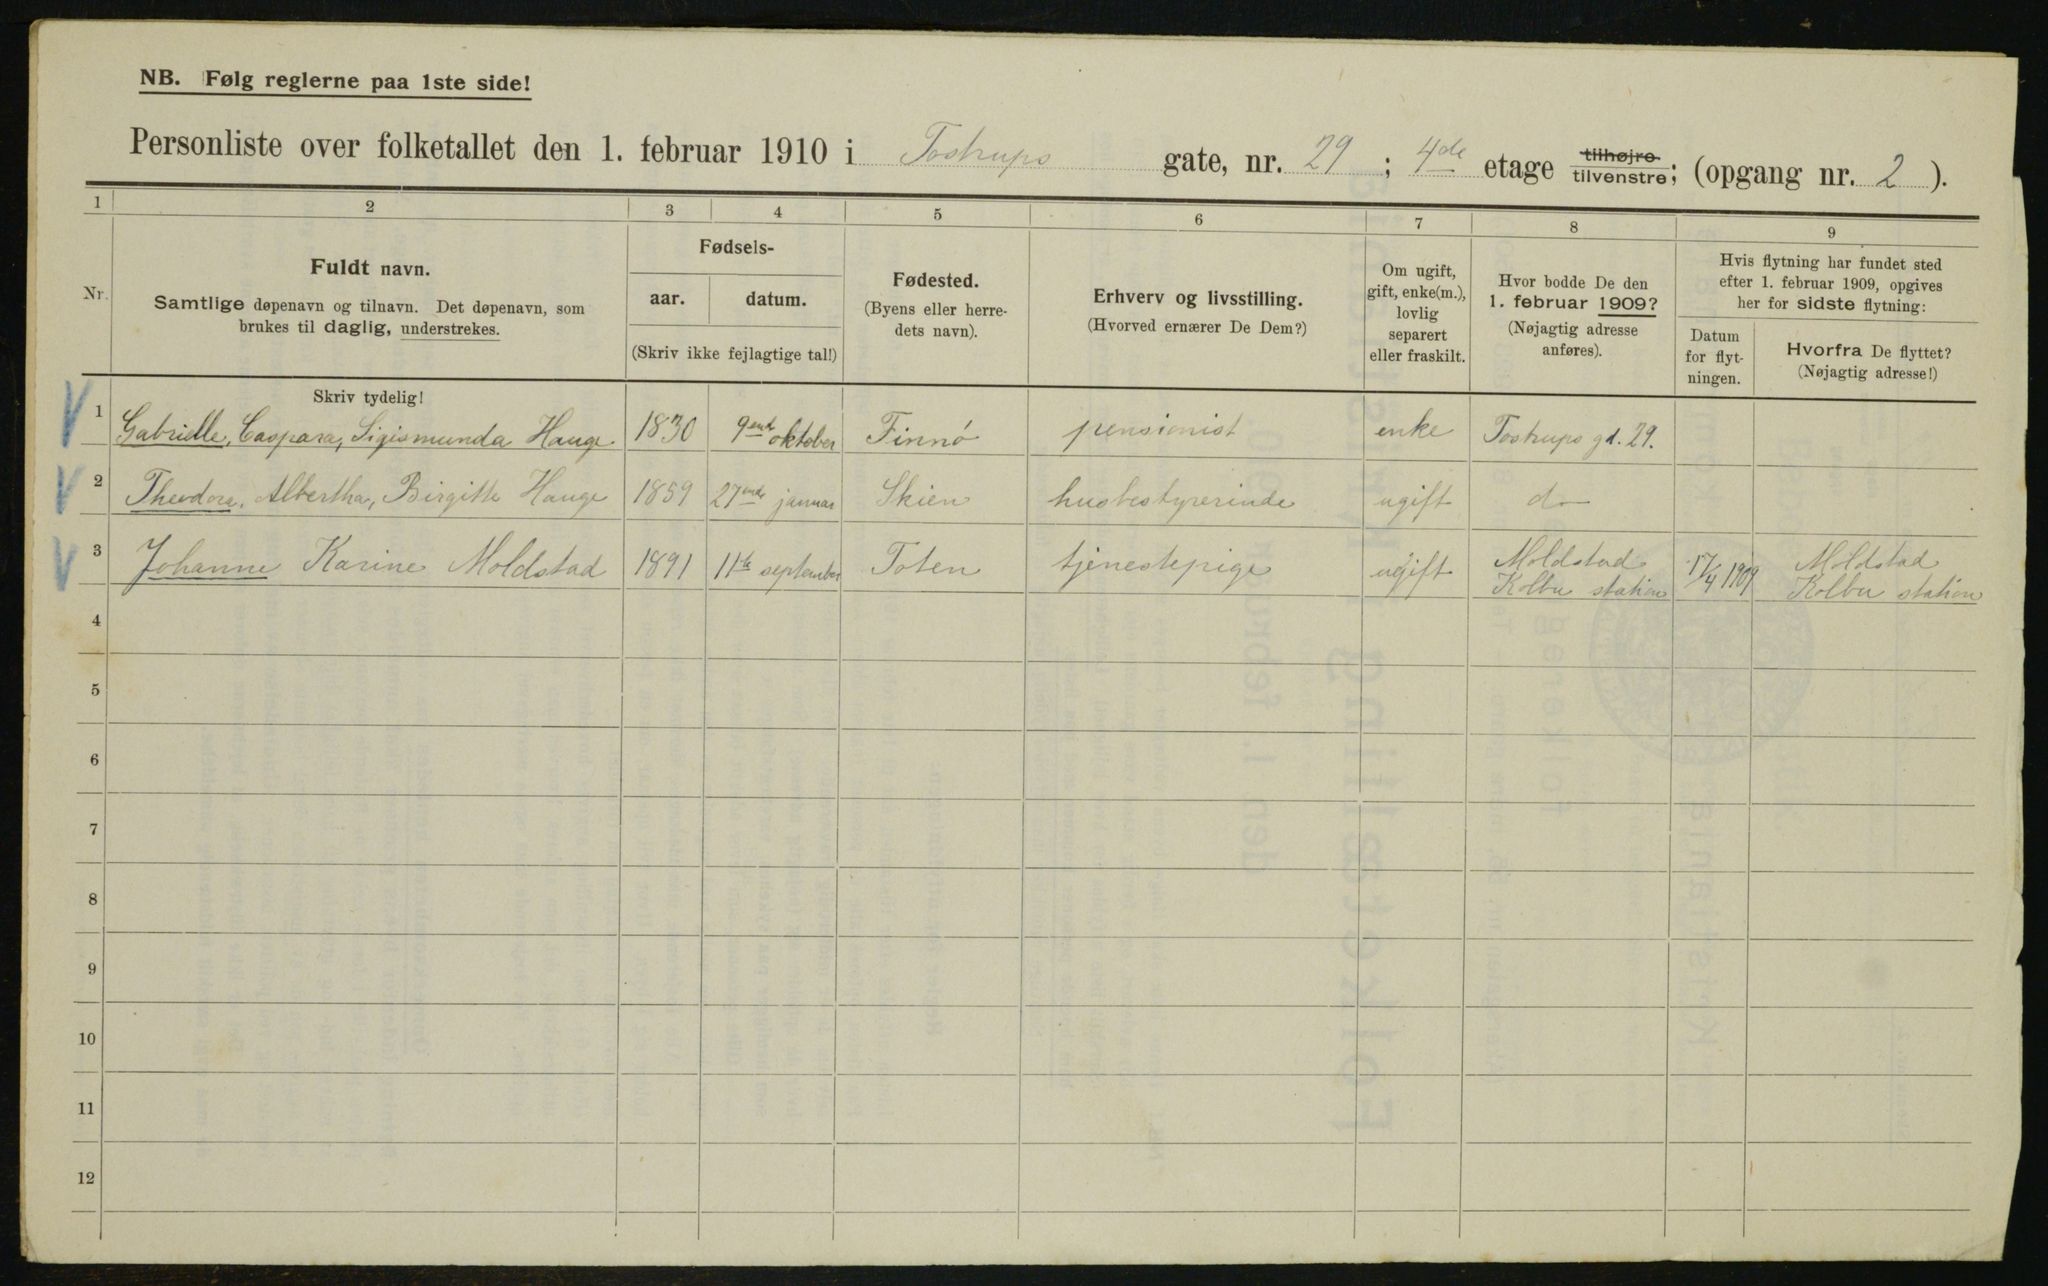 NB. Følg reglerne paa 1ste side!
Personliste over folketallet den 1. februar 1910 i Tostrups gate, nr. 29 ; 4de etage tilhøjre tilvenstre; (opgang nr. 2 ).
1 2 3 4 5 6 7 8 9
Nr. Fuldt navn. Samtlige døpenavn og tilnavn. Det døpenavn, som brukes til daglig, understrekes.
Fødsels- aar. datum. (Skriv ikke fejlagtige tal!)
Fødested. (Byens eller herredets navn).
Erhverv og livsstilling. (Hvorved ernærer De Dem?)
Om ugift, gift, enke(m.), lovlig separert eller fraskilt.
Hvor bodde De den 1. februar 1909? (Nøjagtig adresse anføres).
Hvis flytning har fundet sted efter 1. februar 1909, opgives her for sidste flytning:
Datum for flytningen. Hvorfra De flyttet? (Nøjagtig adresse!)
Skriv tydelig!
1 Gabrielle, Caspara, Sigismunda Hauge 1830 9end oktober Finnö pensionist enke Tostrups gd. 29.
2 Theodora, Albertha, Birgitte Hauge 1859 27ende januar Skien husbestyrerinde ugift do
3 Johanne Karine Moldstad 1891 11te september Toten tjenestepige ugift Moldstad Kolbu station 17/4 1909 Moldstad Kolbu station
4
5
6
7
8
9
10
11
12